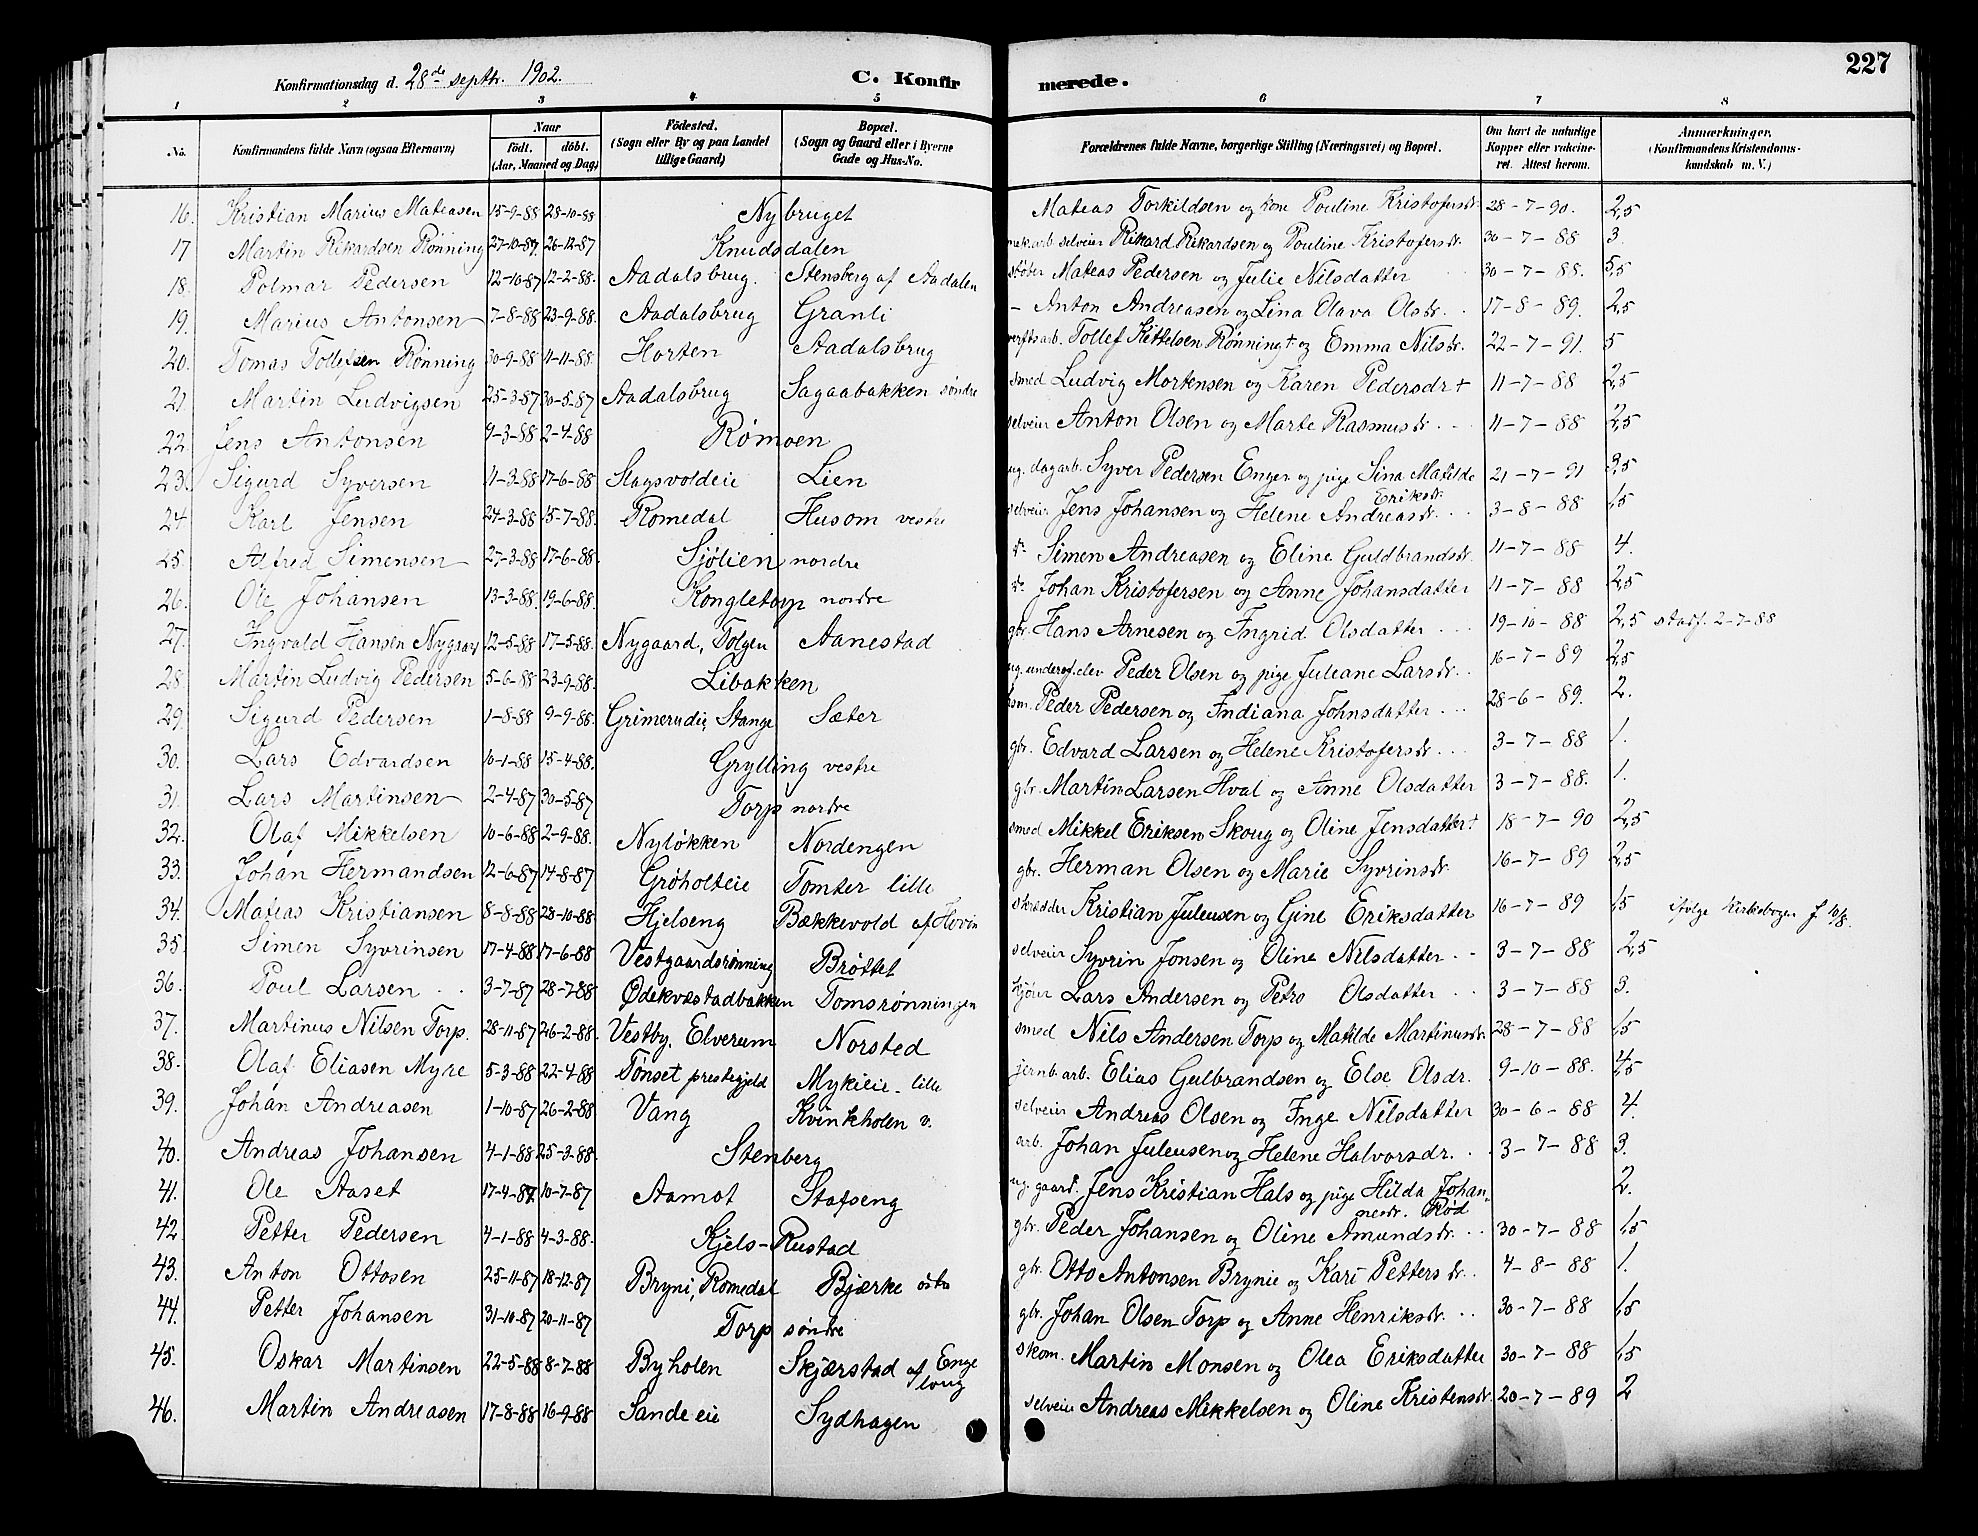 227
Konfirmationsdag d. 28de septbr. 1902. C. Konfirmerede.
1 2 3 4 5 6 7 8
No. Konfirmandens fulde Navn (ogsaa Efternavn) Naar födt. döbt. (Aar, Maaned og Dag) Födested. (Sogn eller By og paa Landet tillige Gaard) Bopæl. (Sogn og Gaard eller i Byerne Gade og Hus-No. Forældrenes fulde Navne, borgerlige Stilling (Næringsvei) og Bopæl. Om havt de naturlige Kopper eller vaccineret. Attest herom. Anmærkninger. (Konfirmandens Kristendomskundskab m. V.)
16. Kristian Marius Mateasen 15-9-88 28-10-88 Nybruget Mateas Torkildsen og kone Pouline Kristofersdr. 28-7-90. 2,5
17 Martin Rikardsen Rønning 27-10-87. 26-12-87 Knudsdalen mek.arb. selveier Rikard Rikardsen og Pouline Kristofersdr. 30-7-88 3.
18. Polmar Pedersen 12-10-87 12-2-88. Aadalsbrug. Stensberg af Aadalen støber Mateas Pedersen og Julie Nilsdatter 30-7-88. 5,5
19. Marius Antonsen 7-8-88 23-9-88. Aadalsbrug Granli - Anton Andreasen og Lina Olava Olsdr. 17-8-89. 2,5
20. Tomas Tollefsen Rønning 30-9-88 11-11-88. Horten Aadalsbrug verftsarb. Tollef Kittelsen Rønning† og Emma Nilsdr. 22-7-91. 5
21 Martin Ludvigsen 25-3-87 30-5-87 Aadalsbrug Sagaabakken søndre smed Ludvig Mortensen og Karen Pedersdr† 11-7-88 2,5
22. Jens Antonsen 9-3-88 2-4-88 Rømoen selveier Anton Olsen og Marte Rasmusdr. 11-7-88 2,5
23. Sigurd Syversen 11-3-88 17-6-88 Slagsvoldeie Lien ug. dagarb. Syver Pedersen Engen og pige Sina Matilde Eriksdr. 21-7-91 3,5
24 Karl Jensen 24-3-88 15-7-88. Romedal Husom vestre selveier Jens Johansen og Helene Andreasdr. 3-8-88 1,5
25. Alfred Simensen 27-3-88 17-6-88. Sjølien nordre do. Simen Andreasen og Eline Guldbrandsdr. 11-7-88 4.
26. Ole Johansen 13-3-88 19-6-88. Kongletorp nordre do. Johan Kristofersen og Anne Johansdatter 11-7-88 2,5
27. Ingvald Hansen Nygaard 12-5-88 17-5-88. Nygaard, Tolgen Aanestad gbr. Hans Arnesen og Ingrid Olsdatter 19-10-88 2,5 stadf. 2-7-88
28 Martin Ludvig Pedersen 5-6-88 23-9-88. Libakken ug. underof.elev Peder Olsen og pige Juleane Larsdr. 16-7-89 2,5
29. Sigurd Pedersen 1-8-88 9-9-88. Grimerudie, Stange Sæter hsm. Peder Pedersen og Indiana Johnsdatter 28-6-89. 2.
30. Lars Edvardsen 10-1-88 15-4-88. Grylling vestre gbr. Edvard Larsen og Helene Kristofersdr. 3-7-88 1.
31. Lars Martinsen 2-4-87 30-5-87 Torp nordre gbr. Martin Larsen Hval og Anne Olsdatter 3-7-88. 1.
32. Olaf Mikkelsen 10-6-88 2-9-88. Nyløkken Nordengen smed Mikkel Eriksen Skoug og Oline Jensdatter† 18-7-90 2,5
33. Johan Hermandsen 12-6-87 14-8-87 Grøholteie Tomter lille gbr. Herman Olsen og Marie Syvrinsdr. 16-7-89 2,5
34. Mateas Kristiansen 8-8-88 28-10-88 Hjelseng Bækkevold af Hovin skrædder Kristian Juleusen og Gine Eriksdatter 16-7-89 1,5 ifølge Kirkebogen f 10/8.
35. Simen Syvrinsen 17-4-88 17-6-88 Vestgaardsrønning Brøttet selveier Syvrin Jonsen og Oline Nilsdatter 3-7-88 2,5
36. Poul Larsen 3-7-87 28-7-88 Ødekvæstadbakken Tomsrønningen Lars Andersen og Petro Olsdatter 3-7-88 3.
37. Martinus Nilsen Torp. 28-11-87 26-2-88. Vestby, Elverum Norsted smed Nils Andersen Torp og Matilde Martinusdr. 28-7-88 1,5
38. Olaf Eliasen Myre 5-3-88 22-4-88 Tønset prestegjeld Mykieie lille jernb.arb. Elias Gulbrandsen og Else Olsdr. 9-10-88. 4,5
39. Johan Andreasen 1-10-87 26-2-88 Vang Kvinkholen v. selveier Andreas Olsen og Inge Nilsdatter 30-6-88 4.
40. Andreas Johansen 4-1-88 25-3-88. Stenberg arb. Johan Juleusen og Helene Halvorsdr. 3-7-88 3.
41. Ole Aaset 17-4-87. 10-7-87 Aamot Stafseng ug. gaard. Jens Kristian Hals og pige Hilda Johannesdr. Rød 2.
42. Petter Pedersen 4-1-88 4-3-88. Kjels-Rustad gbr. Peder Johansen og Oline Amundsdr. 30-7-88 1,5
43. Anton Ottosen 25-11-87 18-12-87 Bryni, Romedal Bjærke østre gbr. Otto Antonsen Brynie og Kari Pettersdr. 4-8-88 1.
44. Petter Johansen 31-10-87 20-11-87 Torp søndre gbr. Johan Olsen Torp og Anne Henriksdr. 30-7-88 1,5
45. Oskar Martinsen 22-5-88 8-7-88 Byholen Skjærstad af Engeloug skom. Martin Monsen og Olea Eriksdatter 30-7-88 1,5
46. Martin Andreasen 17-8-88 16-9-88 Sande eie Sydhagen selveier Andreas Mikkelsen og Oline Kristensdr. 20-7-89 2